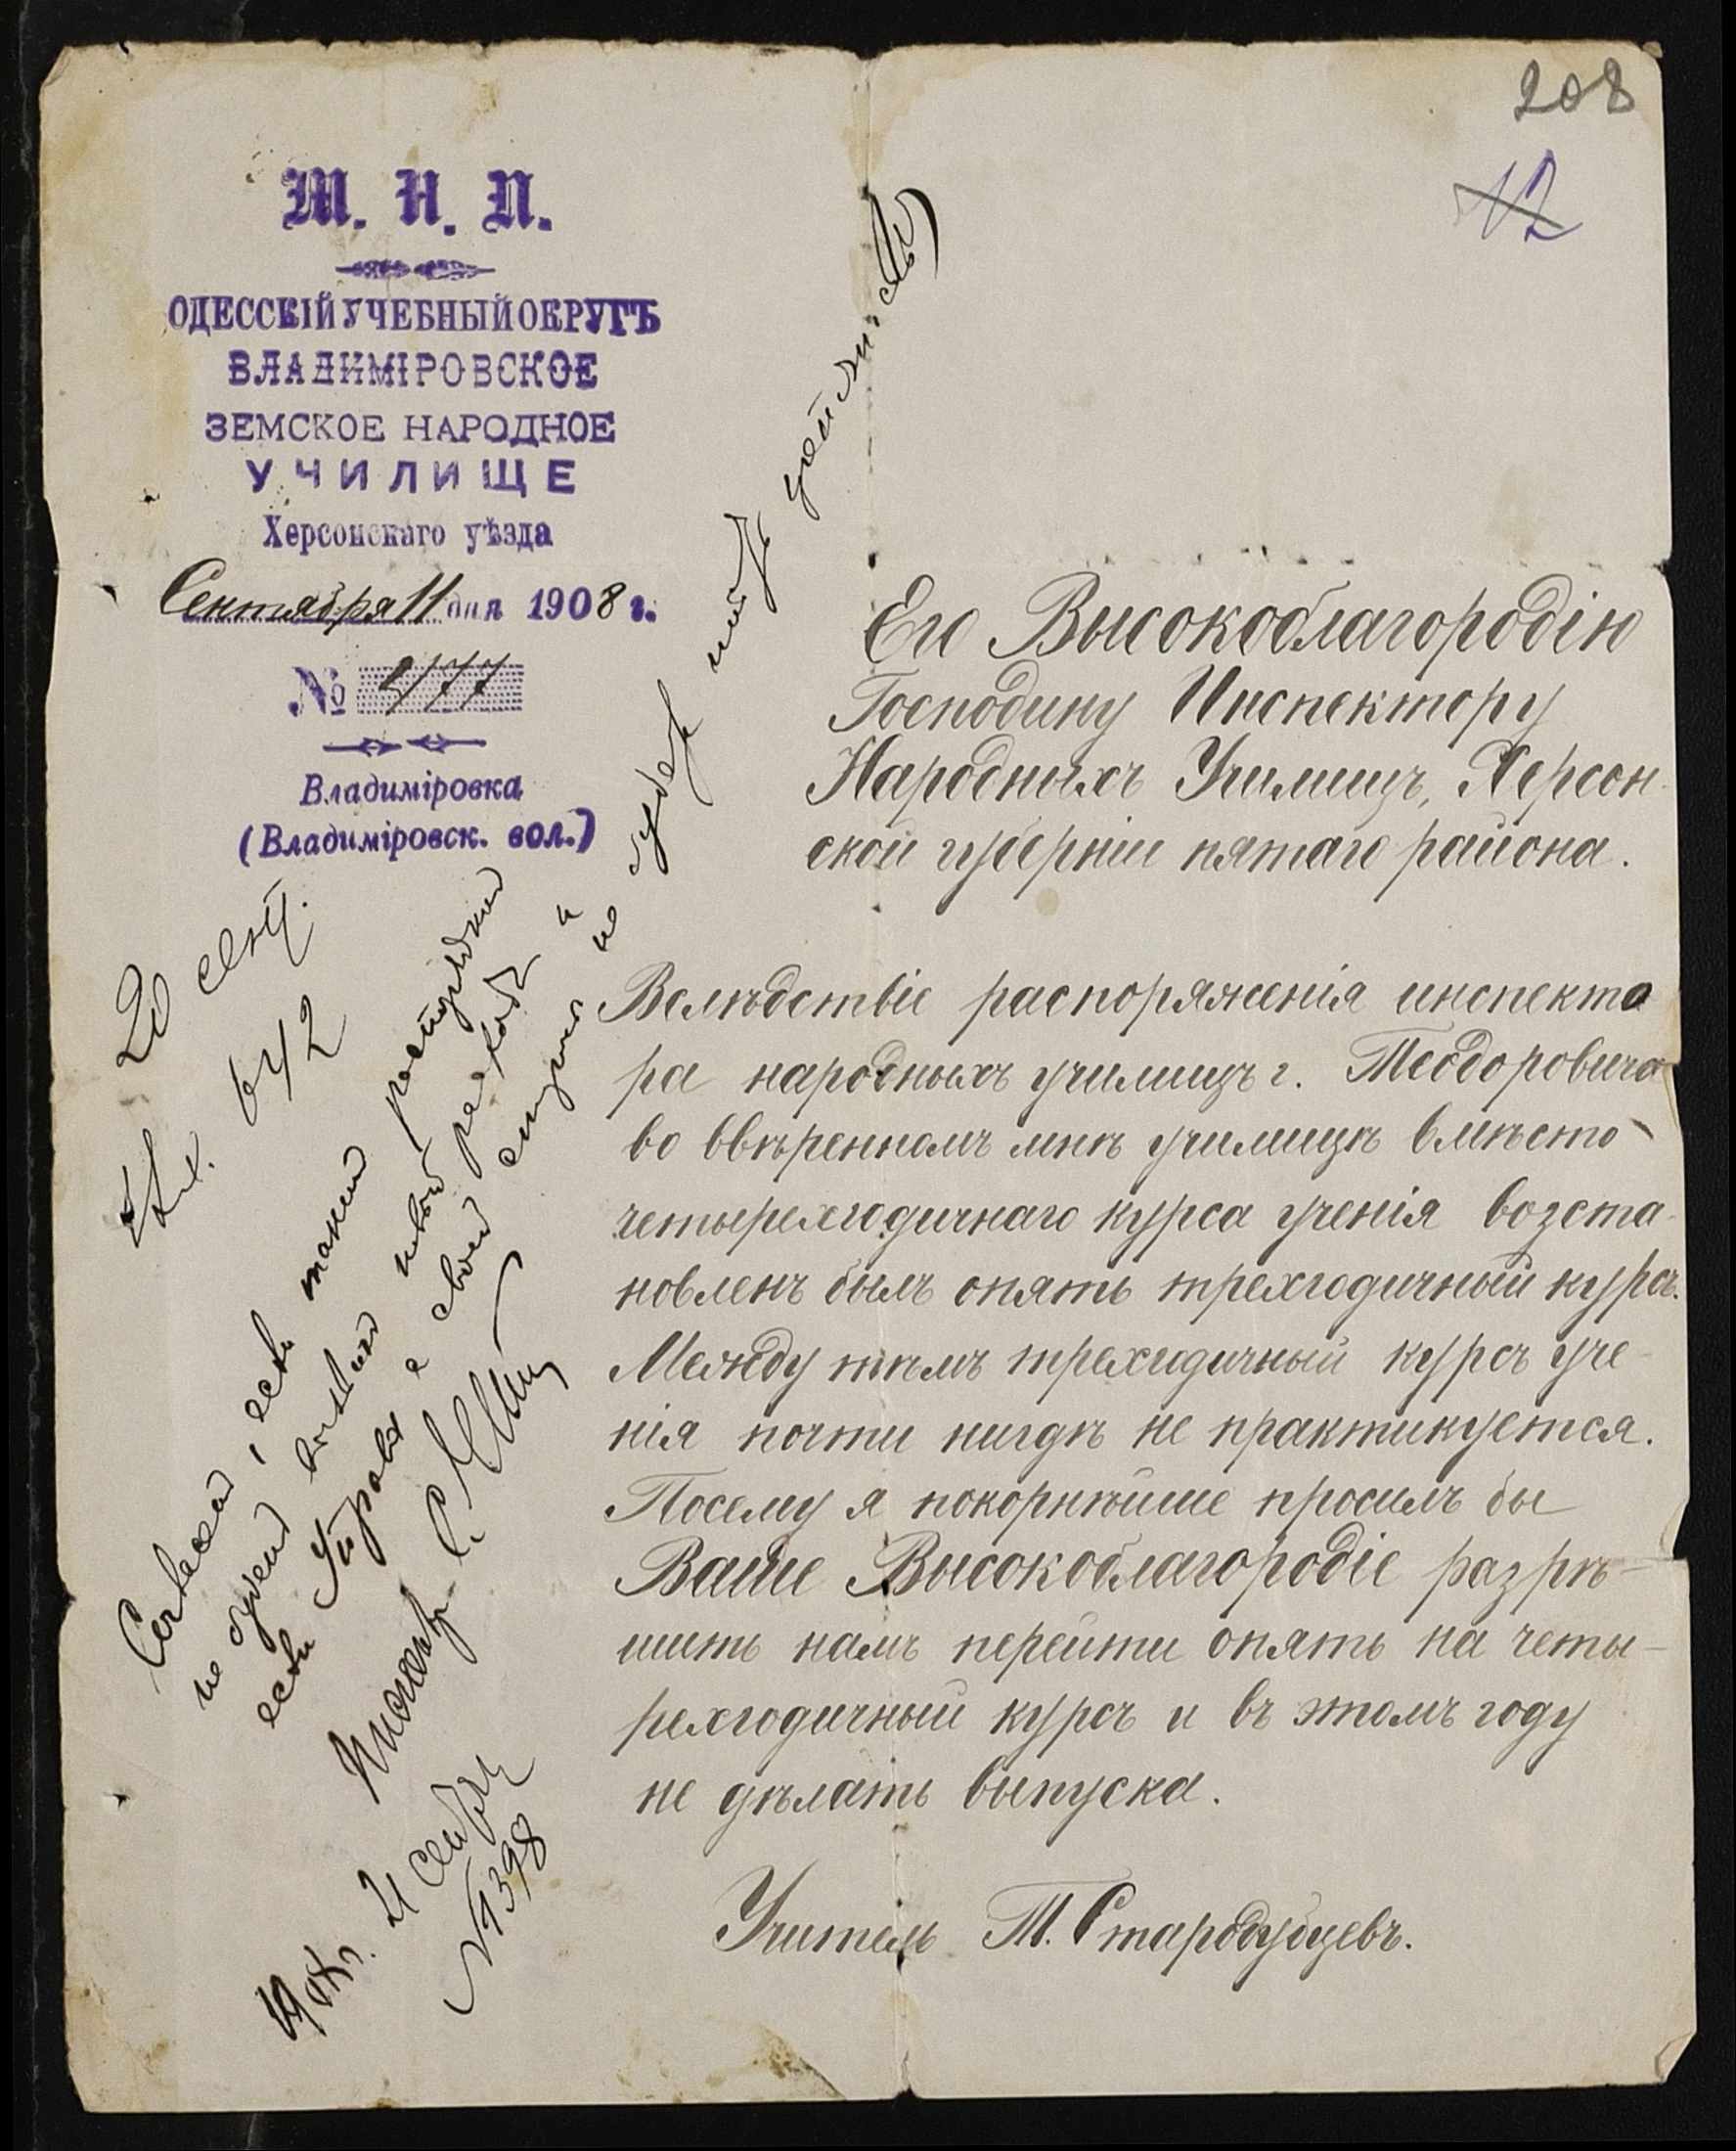 208
12
М. Н. П.
ОДЕССКІЙ УЧЕБНЫЙ ОКРУГЪ
ВЛАДИМІРОВСКОЕ
ЗЕМСКОЕ НАРОДНОЕ
УЧИЛИЩЕ
Херсонскаго уѣзда
Сентября 11 дня 1908 г.
№ 177
Владиміровка
(Владиміровск. вол.)
Его Высокоблагородію
Господину Инспектору
Народныхъ Училищъ, Херсон-
ской губерніи пятаго района.
Вслѣдствіе распоряженія инспекто
ра народныхъ училищъ г. Теодоровича
во ввѣренномъ мнѣ училищѣ вмѣсто
четырехгодичнаго курса ученія возста-
новленъ былъ опять трехгодичный курсъ.
Между тѣмъ трехгодичный курсъ уче-
нія почти нигдѣ не практикуется.
Посему я покорнѣйше просилъ бы
Ваше Высокоблагородіе разрѣ-
шить намъ перейти опять на четы-
рехгодичный курсъ и въ этомъ году
не дѣлать выпуска.
Учитель Т. Стародубцевъ.
20 сент.
Вх. 642
Согласенъ, если такой
не будетъ новый расходъ и
если Управа своей
не будетъ
Инспекторъ
21 сентября
№ 1398